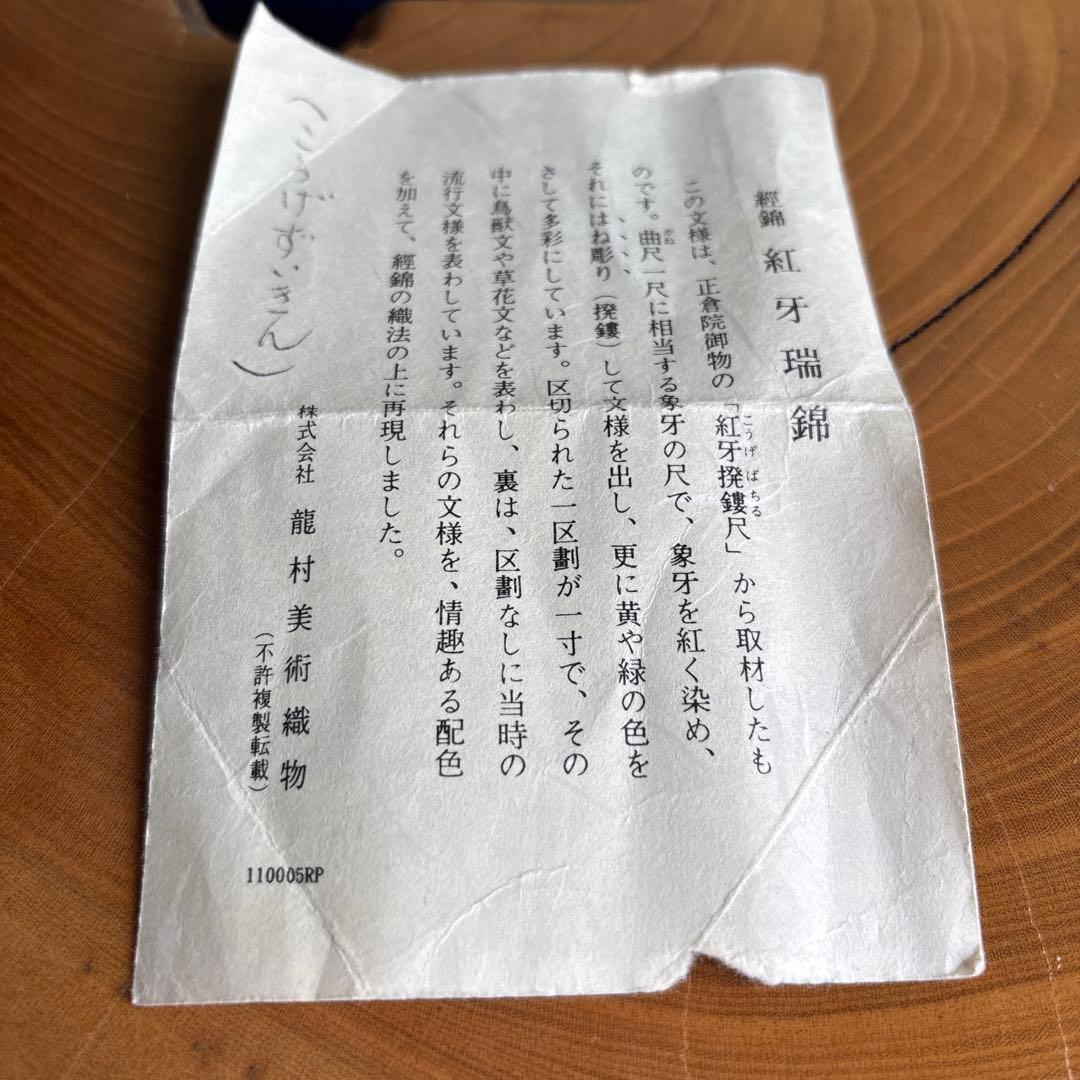 經錦 紅牙瑞錦
この文様は、正倉院御物の「紅牙撥鏤尺」から取材したも
こうげばちる
のです。曲尺一尺に相当する象牙の尺で、象牙を紅く染め、
かね
それにはね彫り（撥鏤）して文様を出し、更に黄や緑の色を
さして多彩にしています。区切られた一区劃が一寸で、その
中に鳥獣文や草花文などを表わし、裏は、区劃なしに当時の
流行文様を表わしています。それらの文様を、情趣ある配色
を加えて、經錦の織法の上に再現しました。
株式会社 龍村美術織物
（不許複製転載）
110005RP
（こうげずいきん）